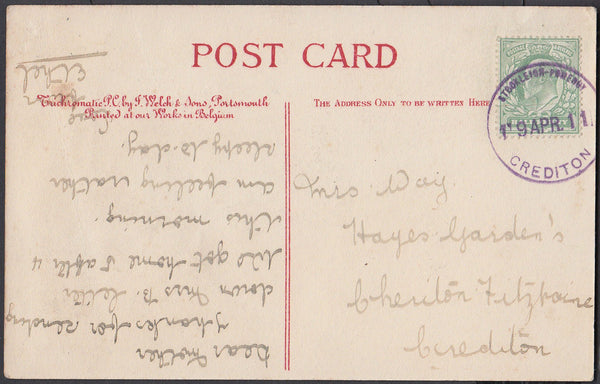 POST CARD
Trichromatic P.C. by J. Welch & Sons, Portsmouth
Printed at our Works in Belgium
THE ADDRESS ONLY TO BE WRITTEN HERE
STOCKLEIGH-POMEROY
19 APR. 11
CREDITON
Mrs Way
Hayes Garden's
Cheriton Fitzpaine
Crediton
Dear Mother
thanks for sending
down Mrs B. letter
We got home 5 after 4
this morning.
am feeling rather
sleepy to-day.
love
from
Ethel